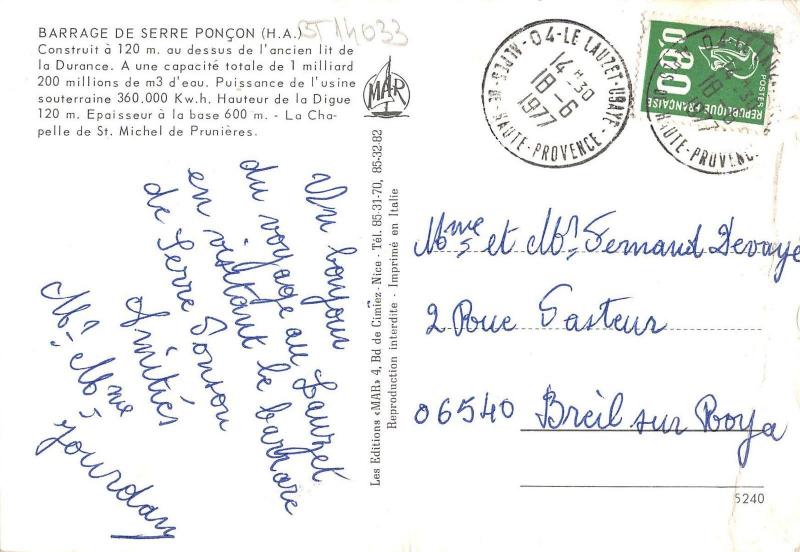 BARRAGE DE SERRE PONÇON (H.A.)
Construit à 120 m. au dessus de l'ancien lit de
la Durance. A une capacité totale de 1 milliard
200 millions de m3 d'eau. Puissance de l'usine
souterraine 360.000 Kw.h. Hauteur de la Digue
120 m. Epaisseur à la base 600 m. - La Cha-
pelle de St. Michel de Prunières.
ST14033
MAR
04-LE LAUZET-UBAYE
14 H 30
18-6
1977
ALPES-DE-HAUTE-PROVENCE
0,80
POSTES
REPUBLIQUE FRANÇAISE
Un bonjour
du voyage au Lauzet
en visitant le barrage
de Serre Ponson
Amitiés
Mr Mme
Jourdan
Les Editions «MAR» 4, Bd de Cimiez - Nice - Tél. 85-31-70, 85-32-82
Reproduction interdite - Imprimé en Italie
Mme et Mr Fernand Devaye
2 Rue Pasteur
06540 Breil sur Roya
5240